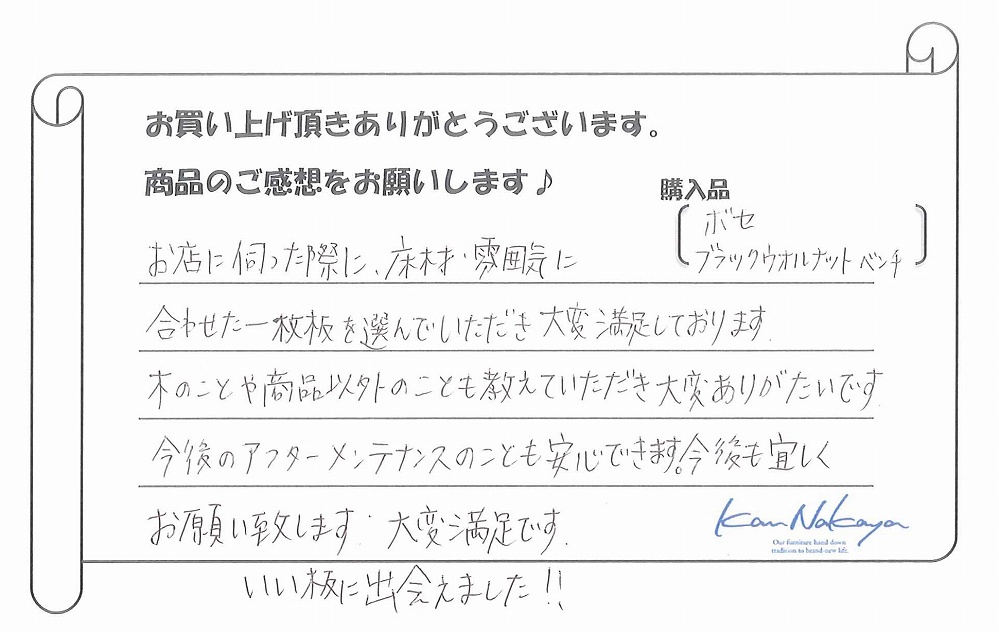 お買い上げ頂きありがとうございます。
商品のご感想をお願いします♪
購入品
ボセ
ブラックウォルナット ベンチ
お店に伺った際に、床材・雰囲気に
合わせた一枚板を選んでいただき大変満足しております.
木のことや商品以外のことも教えていただき大変ありがたいです.
今後のアフターメンテナンスのことも安心できます。今後も宜しく
お願い致します. 大変満足です.
いい板に出会えました!!
Kan Nakaya
Our furniture hand down
tradition to brand-new life.